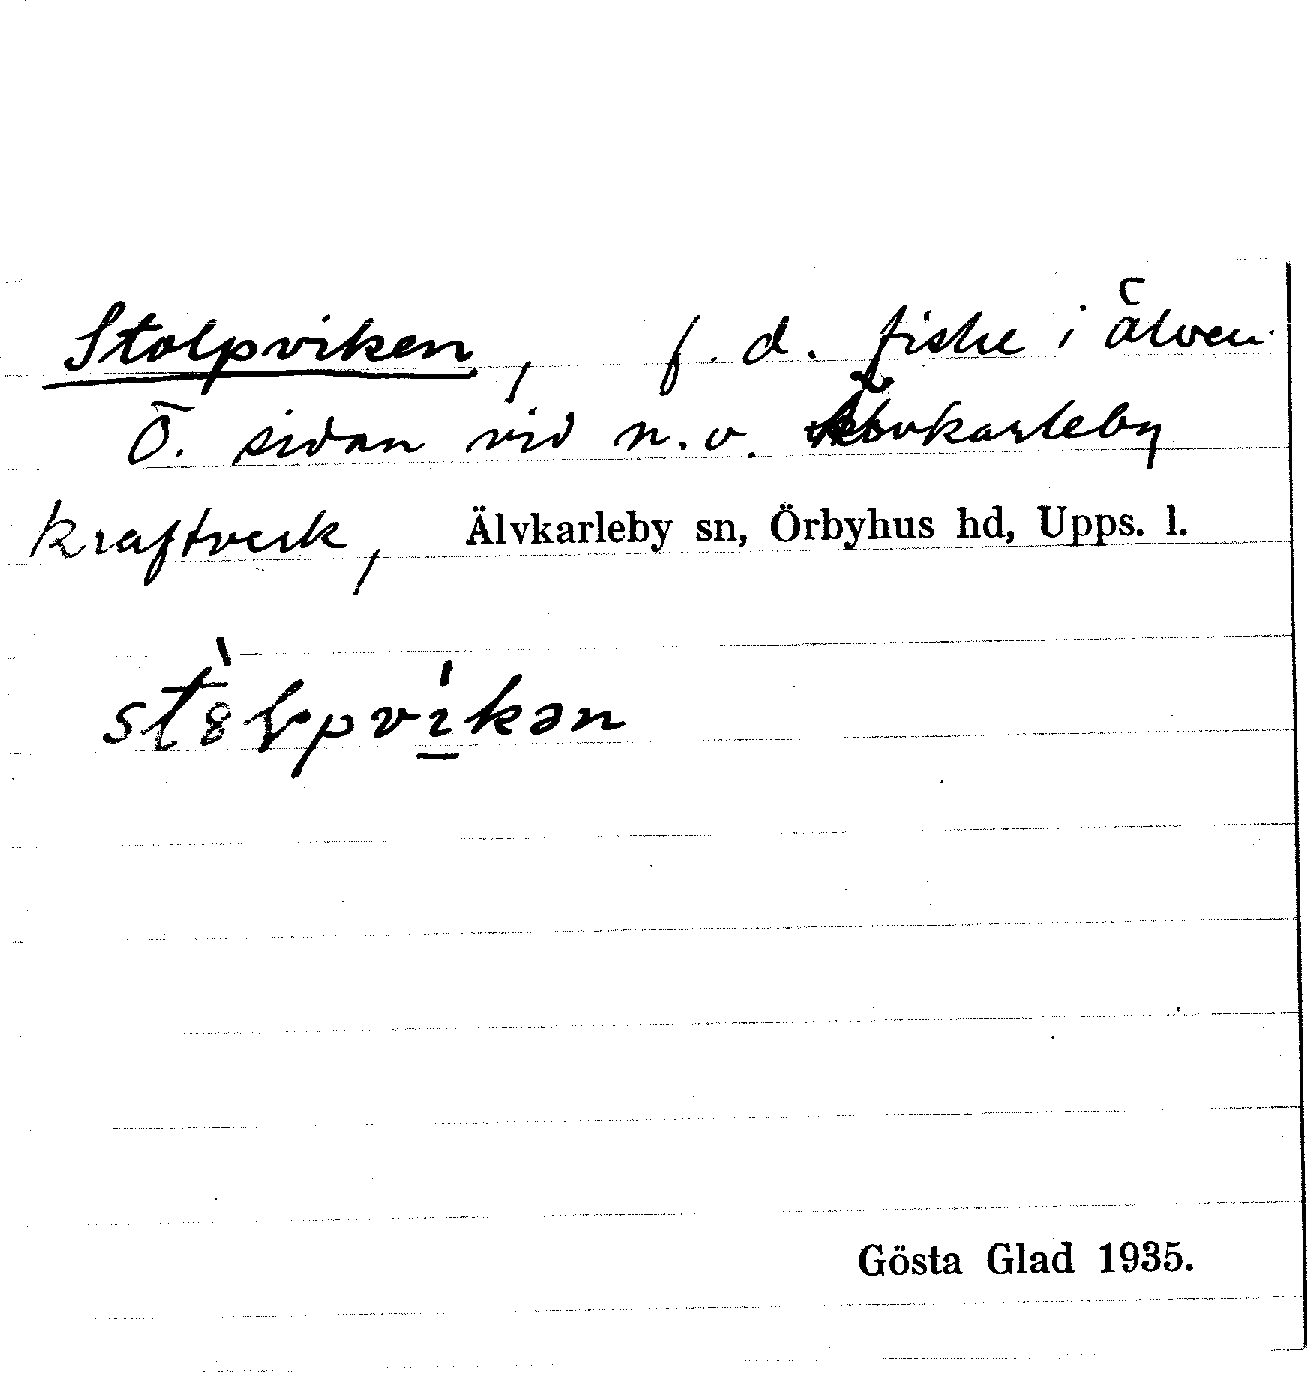 Stolpviken, f.d. fiske i älven
Ö. sidan vid n.v. Älvkarleby
kraftverk, Älvkarleby sn, Örbyhus hd, Upps. l.
stò̀ȣłpvíkən
Gösta Glad 1935.